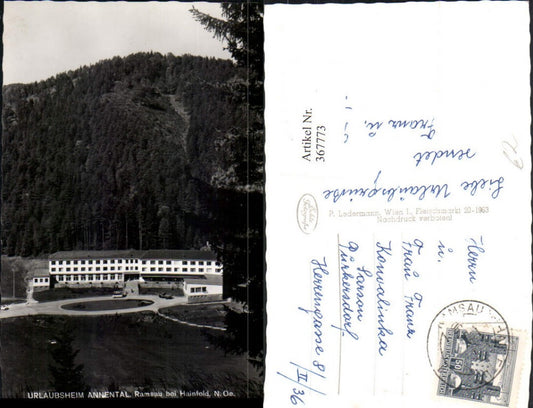 URLAUBSHEIM ANNENTAL, Ramsau bei Hainfeld, N. Oe.
Artikel Nr.
367773
Liebe Urlaubsgrüsse
sendet
Franz u.
P. Ledermann, Wien I., Fleischmarkt 20-1963
Nachdruck verboten!
Herrn
u.
Frau Franz
Konvalinka
Purkersdorf
Herrengasse 8/
II/36
RAMSAU